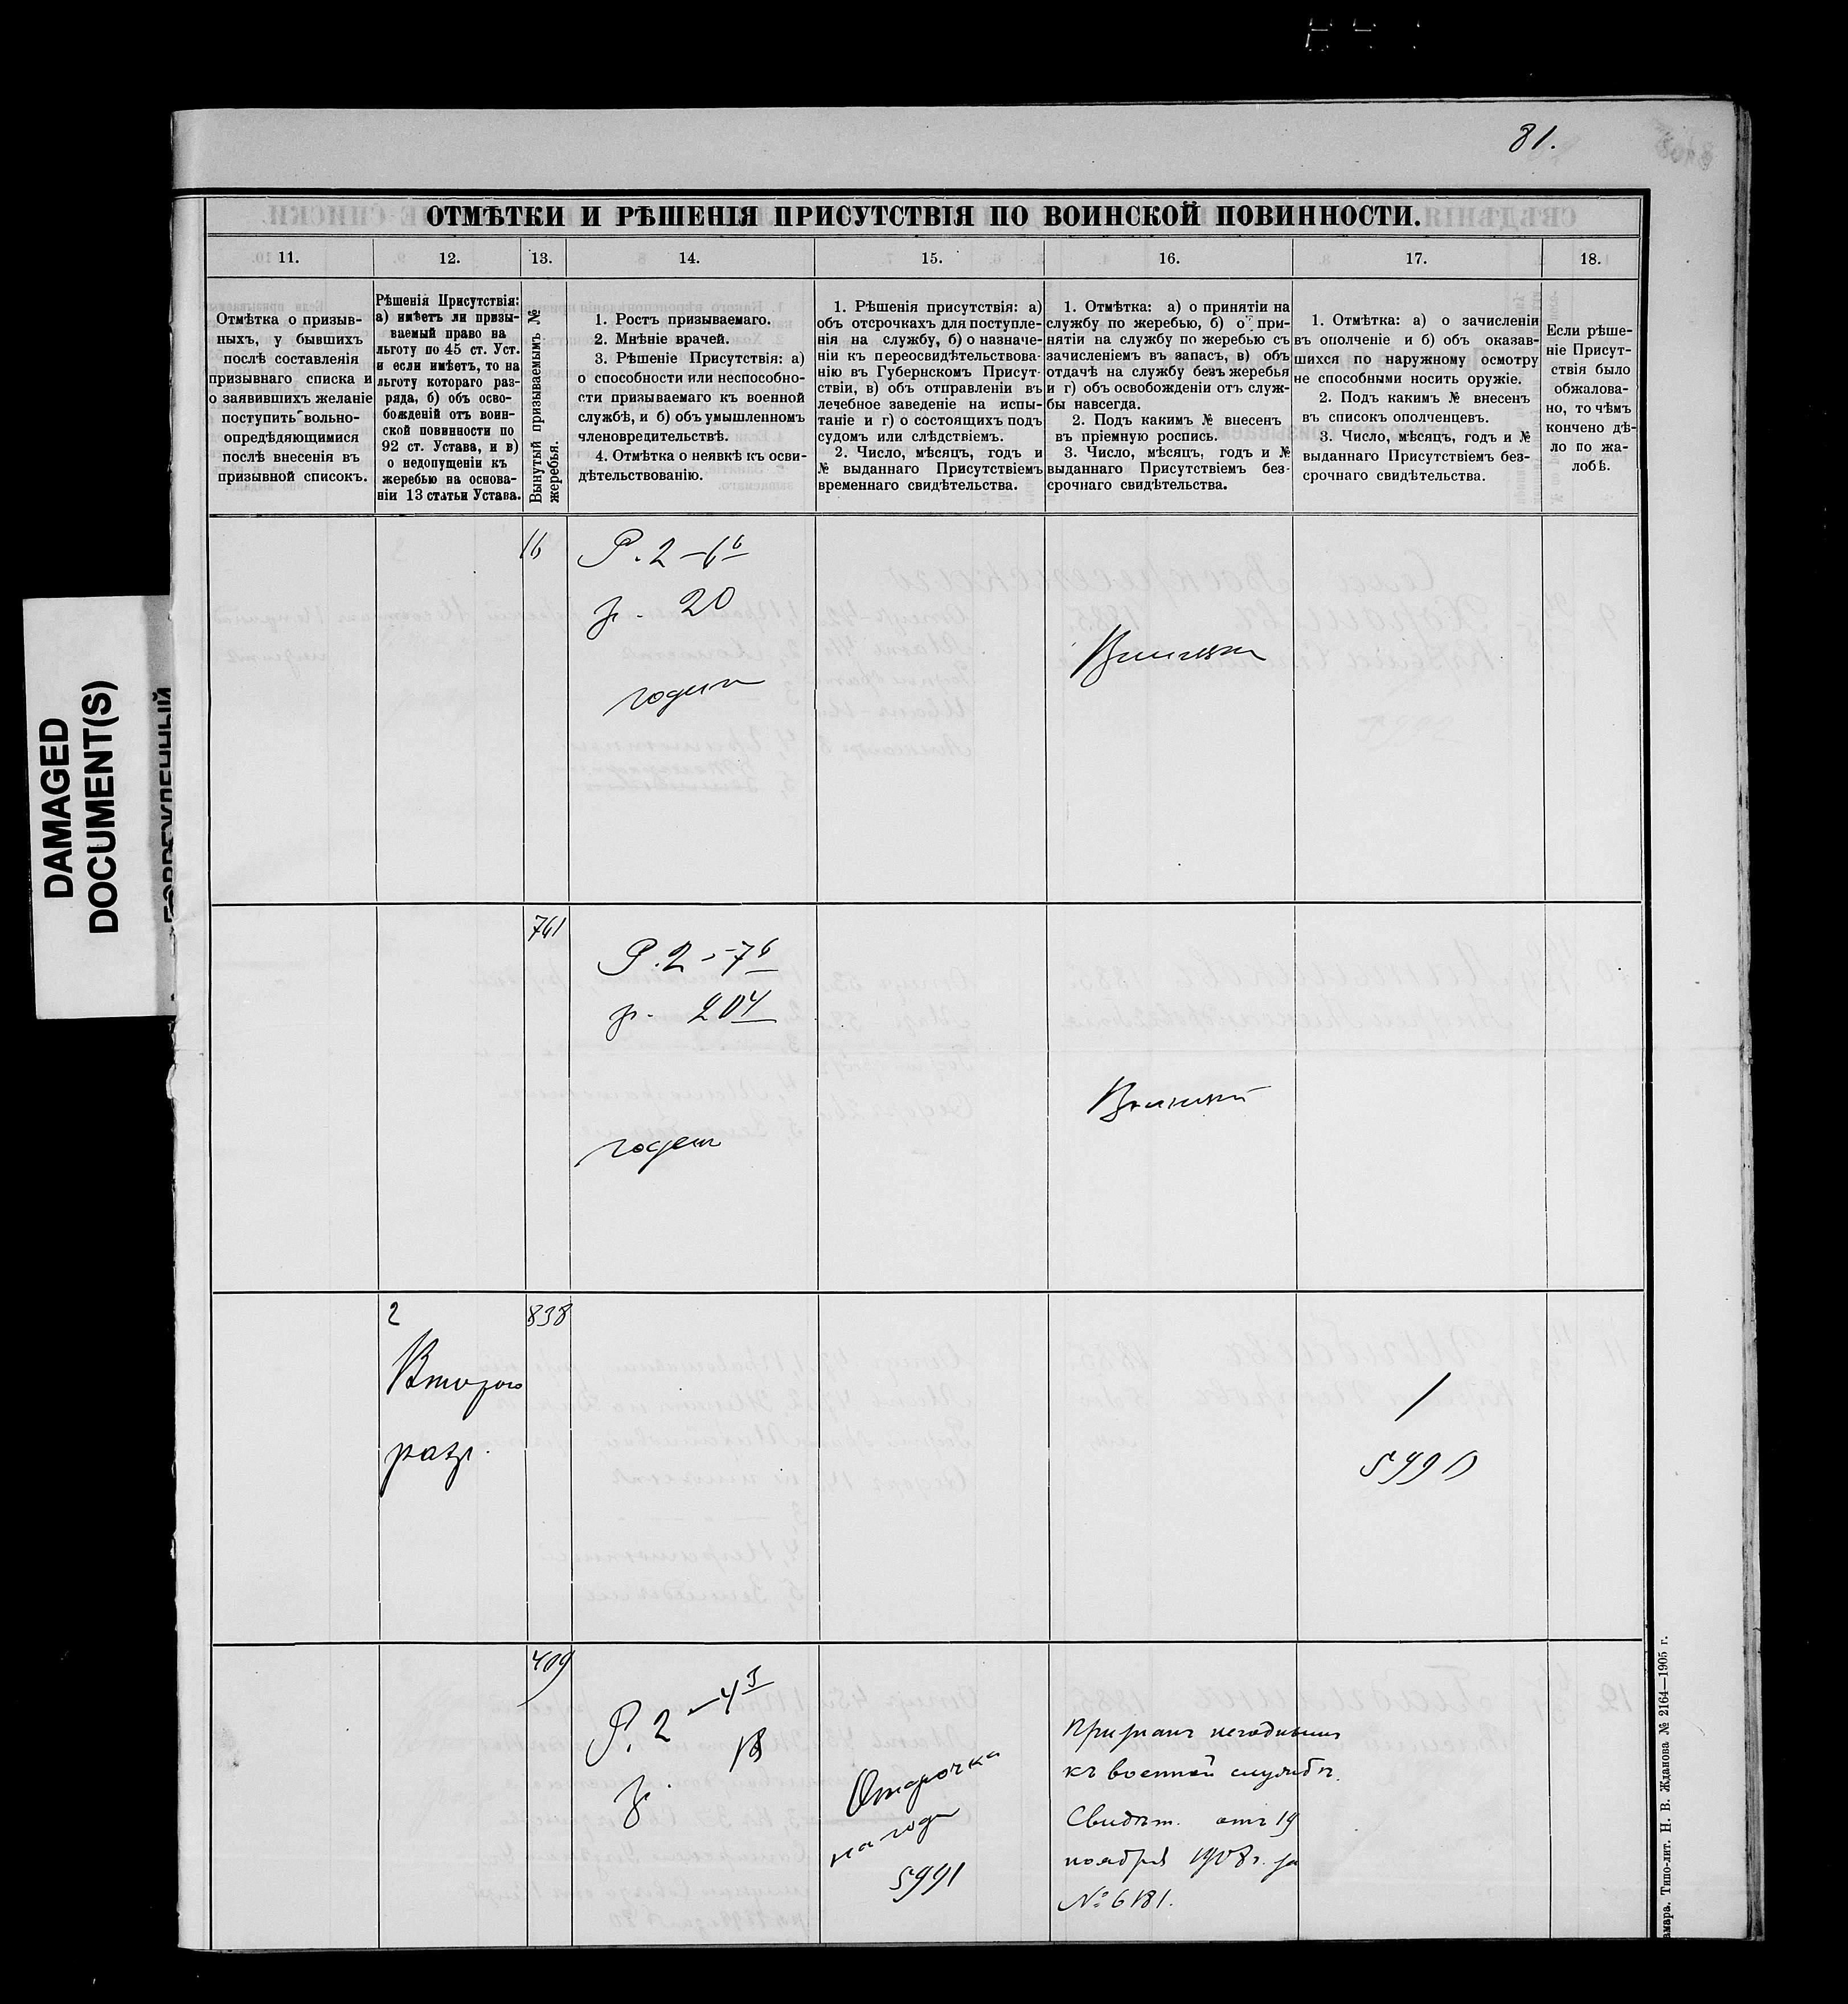 81.
ОТМѢТКИ И РѢШЕНІЯ ПРИСУТСТВІЯ ПО ВОИНСКОЙ ПОВИННОСТИ.
11.
12.
13.
14.
15.
16.
17.
18.
Отмѣтка о призыв-
ныхъ, у бывшихъ
послѣ составленія
призывнаго списка и
о заявившихъ желаніе
поступить вольно-
опредѣляющимися
послѣ внесенія въ
призывной списокъ.
Рѣшенія Присутствія:
а) имѣетъ ли призы-
ваемый право на
льготу по 45 ст. Уст.
и если имѣетъ, то на
льготу котораго раз-
ряда, б) объ осво-
божденій отъ воин-
ской повинности по
92 ст. Устава, и в)
о недопущеніи къ
жеребью на основа-
ніи 13 статьи Устава.
Вынутый призываемымъ №
жеребья.
1. Ростъ призываемаго.
2. Мнѣніе врачей.
3. Рѣшеніе Присутствія: а)
о способности или неспособно-
сти призываемаго къ военной
службѣ, и б) объ умышленномъ
членовредительствѣ.
4. Отмѣтка о неявкѣ къ осви-
дѣтельствованію.
1. Рѣшенія присутствія: а)
объ отсрочкахъ для поступле-
нія на службу, б) о назначе-
ніи къ переосвидѣтельствова-
нію въ Губернскомъ Присут-
ствіи, в) объ отправленіи въ
лечебное заведеніе на испы-
таніе и г) о состоящихъ подъ
судомъ или слѣдствіемъ.
2. Число, мѣсяцъ, годъ и
№ выданнаго Присутствіемъ
временнаго свидѣтельства.
1. Отмѣтка: а) о принятіи на
службу по жеребью, б) о при-
нятіи на службу по жеребью съ
зачисленіемъ въ запасъ, в) объ
отдачѣ на службу безъ жеребья
и г) объ освобожденіи отъ служ-
бы навсегда.
2. Подъ какимъ № внесенъ
въ пріемную роспись.
3. Число, мѣсяцъ, годъ и №
выданнаго Присутствіемъ без-
срочнаго свидѣтельства.
1. Отмѣтка: а) о зачисленіи
въ ополченіе и б) объ оказав-
шихся по наружному осмотру
не способными носить оружіе.
2. Подъ какимъ № внесенъ
въ списокъ ополченцевъ.
3. Число, мѣсяцъ, годъ и №
выданнаго Присутствіемъ без-
срочнаго свидѣтельства.
Если рѣше-
ніе Присут-
ствія было
обжалова-
но, то чѣмъ
кончено дѣ-
ло по жа-
лобѣ.
16
Р. 2 – 6 6
г. 20
годенъ
761
Р. 2 – 7 6
г. 20 4
годенъ
2
Втораго
разр.
838
1
5990
409
Р. 2 – 4 3
г. 18
Отсрочка
на годъ
5991
Признанъ негоднымъ
къ военной службѣ.
Свидѣт. отъ 19
ноября 1908 г. за
№ 6181.
DAMAGED
DOCUMENT(S)
ПОВРЕЖДЕННЫЙ
амара. Типо-лит. Н. В. Жданова № 2164—1905 г.